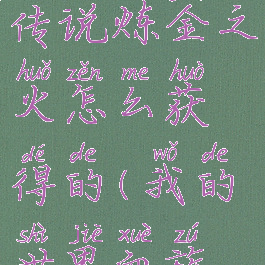 传说炼金之
huǒ zěn me huò
火怎么获
dé de wǒ de
得的(我的
shì jiè xuè zú